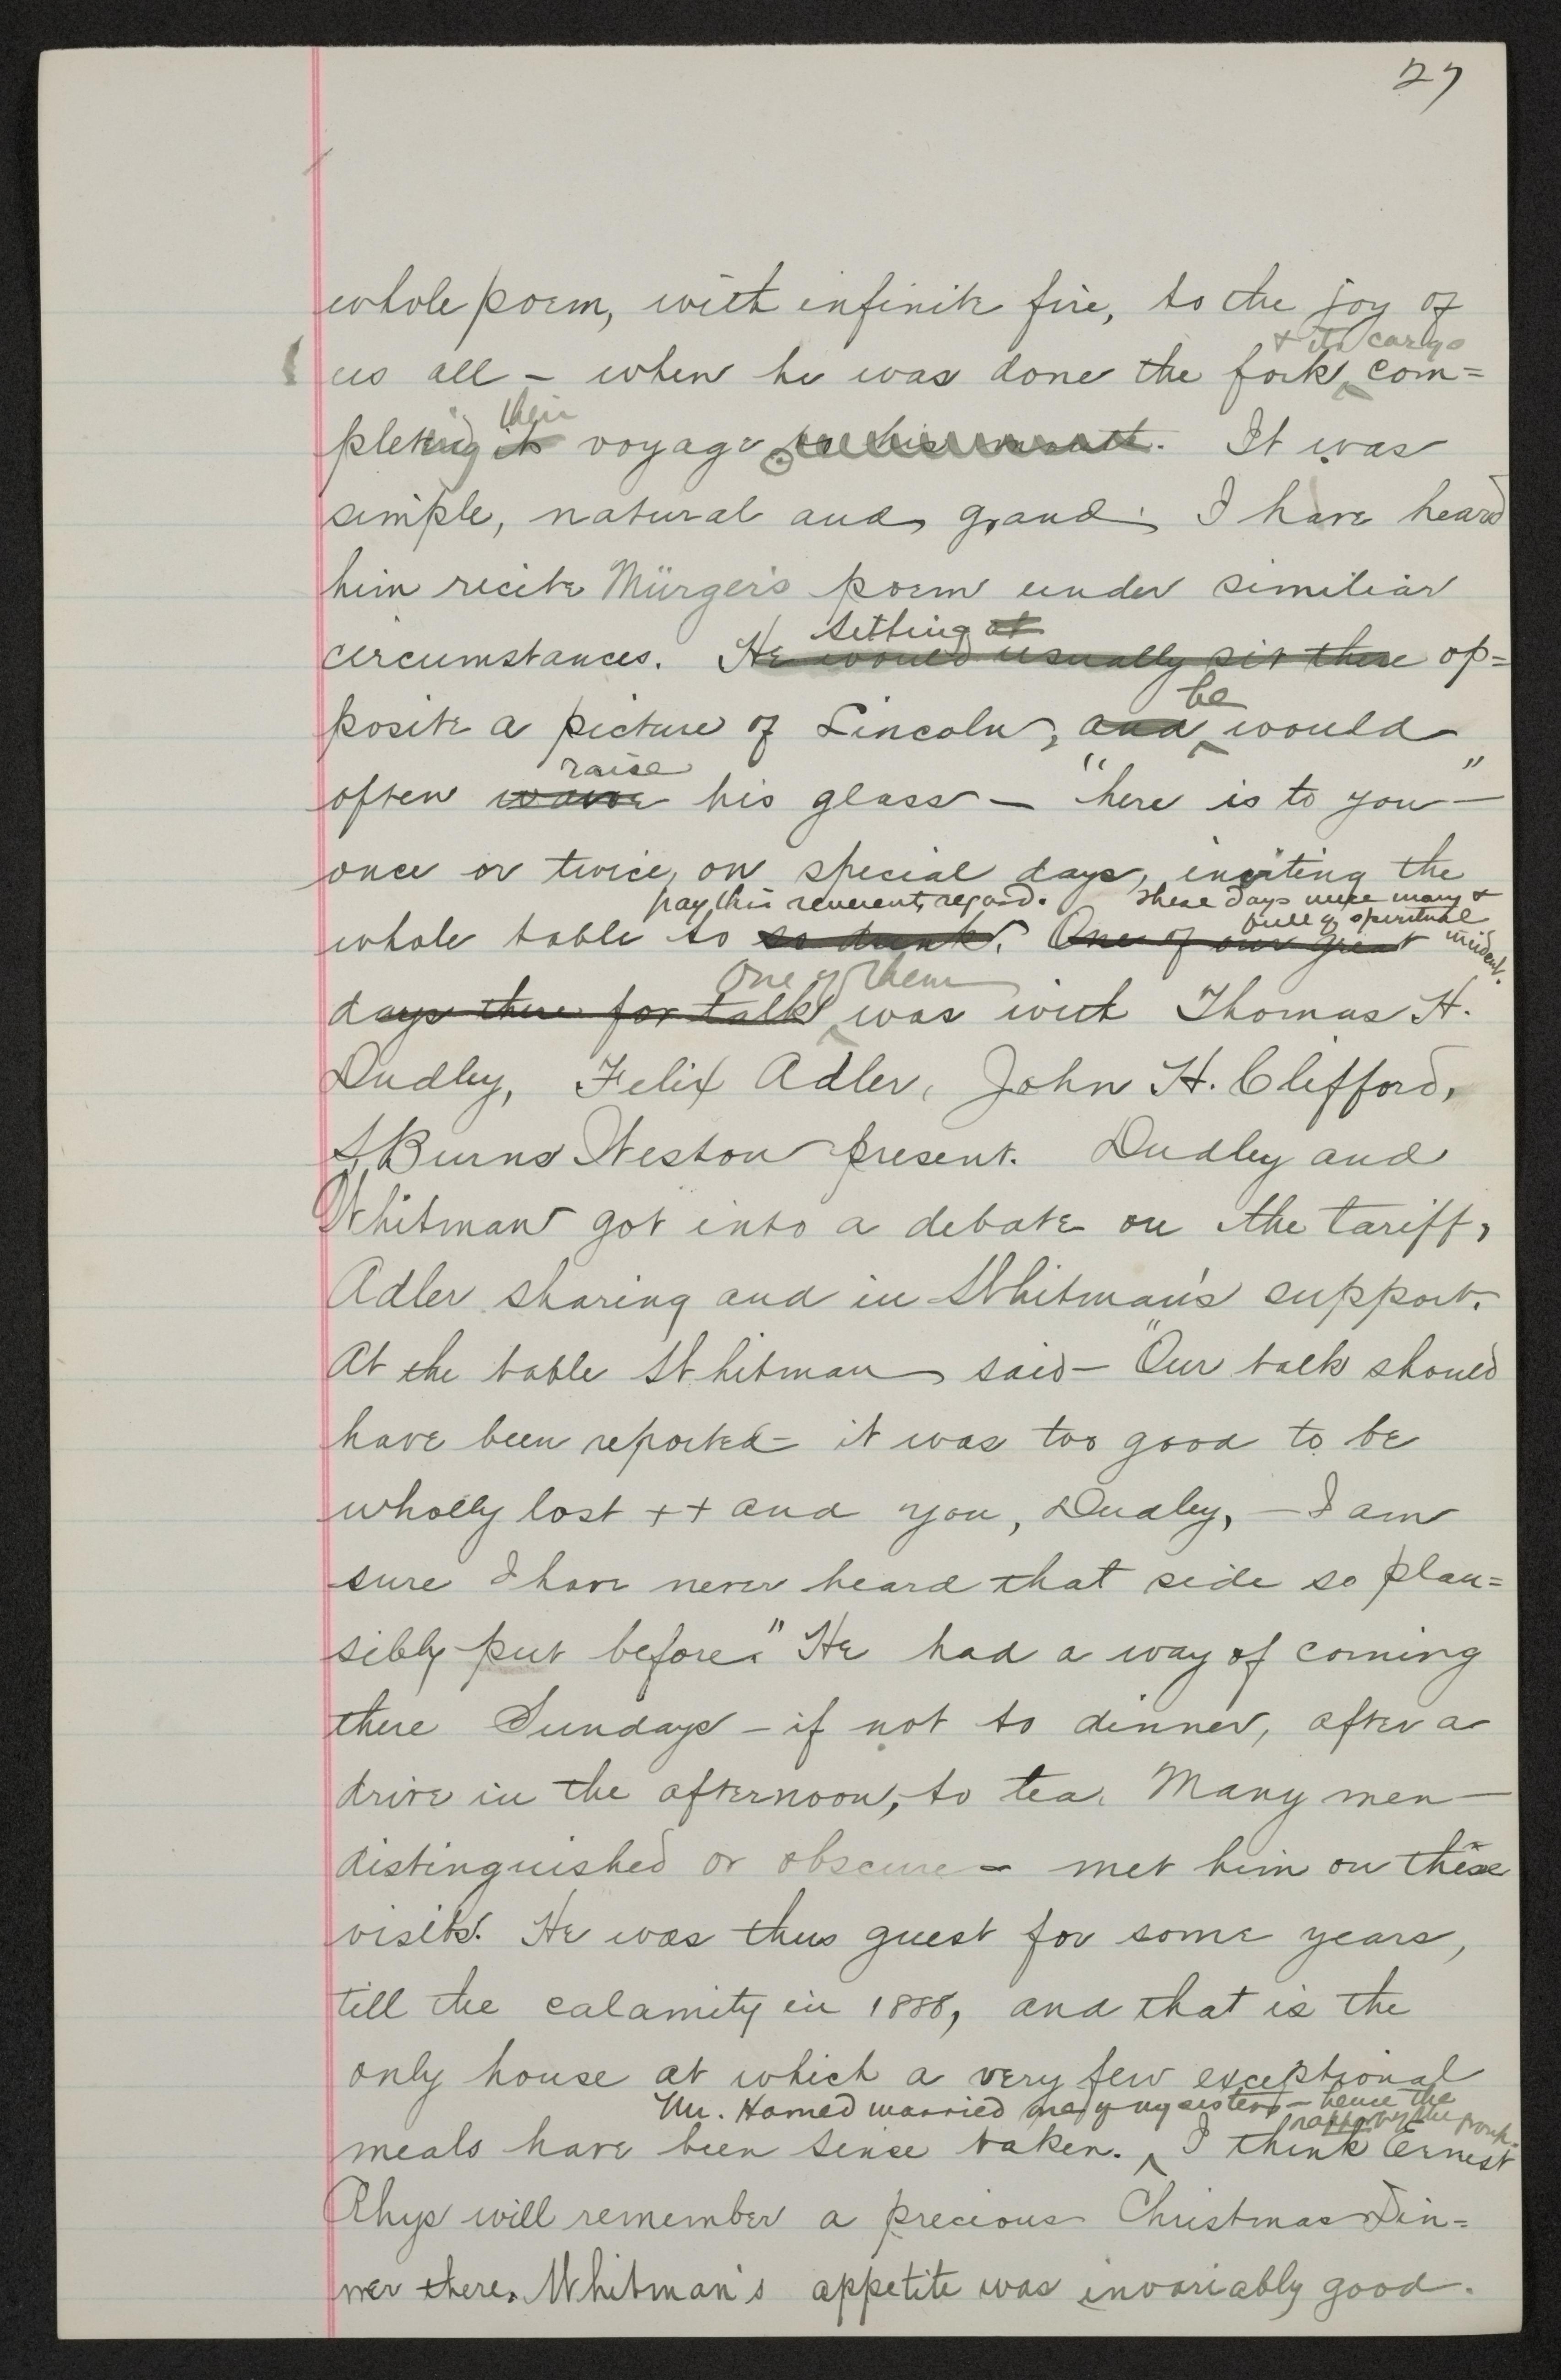 27
whole poem, with infinite fire, to the joy of
+ its cargo
us all – when he was done the fork ^ com=
their
pleting its voyage to his mouth. It was
simple, natural and grand. I have heard
him recite Mürger's poem under similiar
Sitting at
circumstances. He would usually sit there op=
he
posite a picture of Lincoln, and ^ would
raise
often wave his glass – "here is to you" –
once or twice, on special days, inviting the
pay this reverent regard. These days were many &
full of spiritual
incident.
whole table to so drink. One of our great
One of them
days there for talk ^ was with Thomas H.
Dudley, Felix Adler, John H. Clifford,
S. Burns Weston present. Dudley and
Whitman got into a debate on the tariff,
Adler sharing and in Whitman's support.
At the table Whitman said – "Our talk should
have been reported – it was too good to be
wholly lost ++ and you, Dudley, – I am
sure I have never heard that side so plau=
sibly put before." He had a way of coming
there Sundays – if not to dinner, after a
drive in the afternoon, to tea. Many men –
distinguished or obscure – met him on these
visits. He was thus guest for some years,
till the calamity in 1888, and that is the
only house at which a very few exceptional
Mr. Harned married one of my sisters – hence the
rapport of the group.
meals have been since taken. ^ I think Ernest
Rhys will remember a precious Christmas din=
ner there. Whitman's appetite was invariably good.